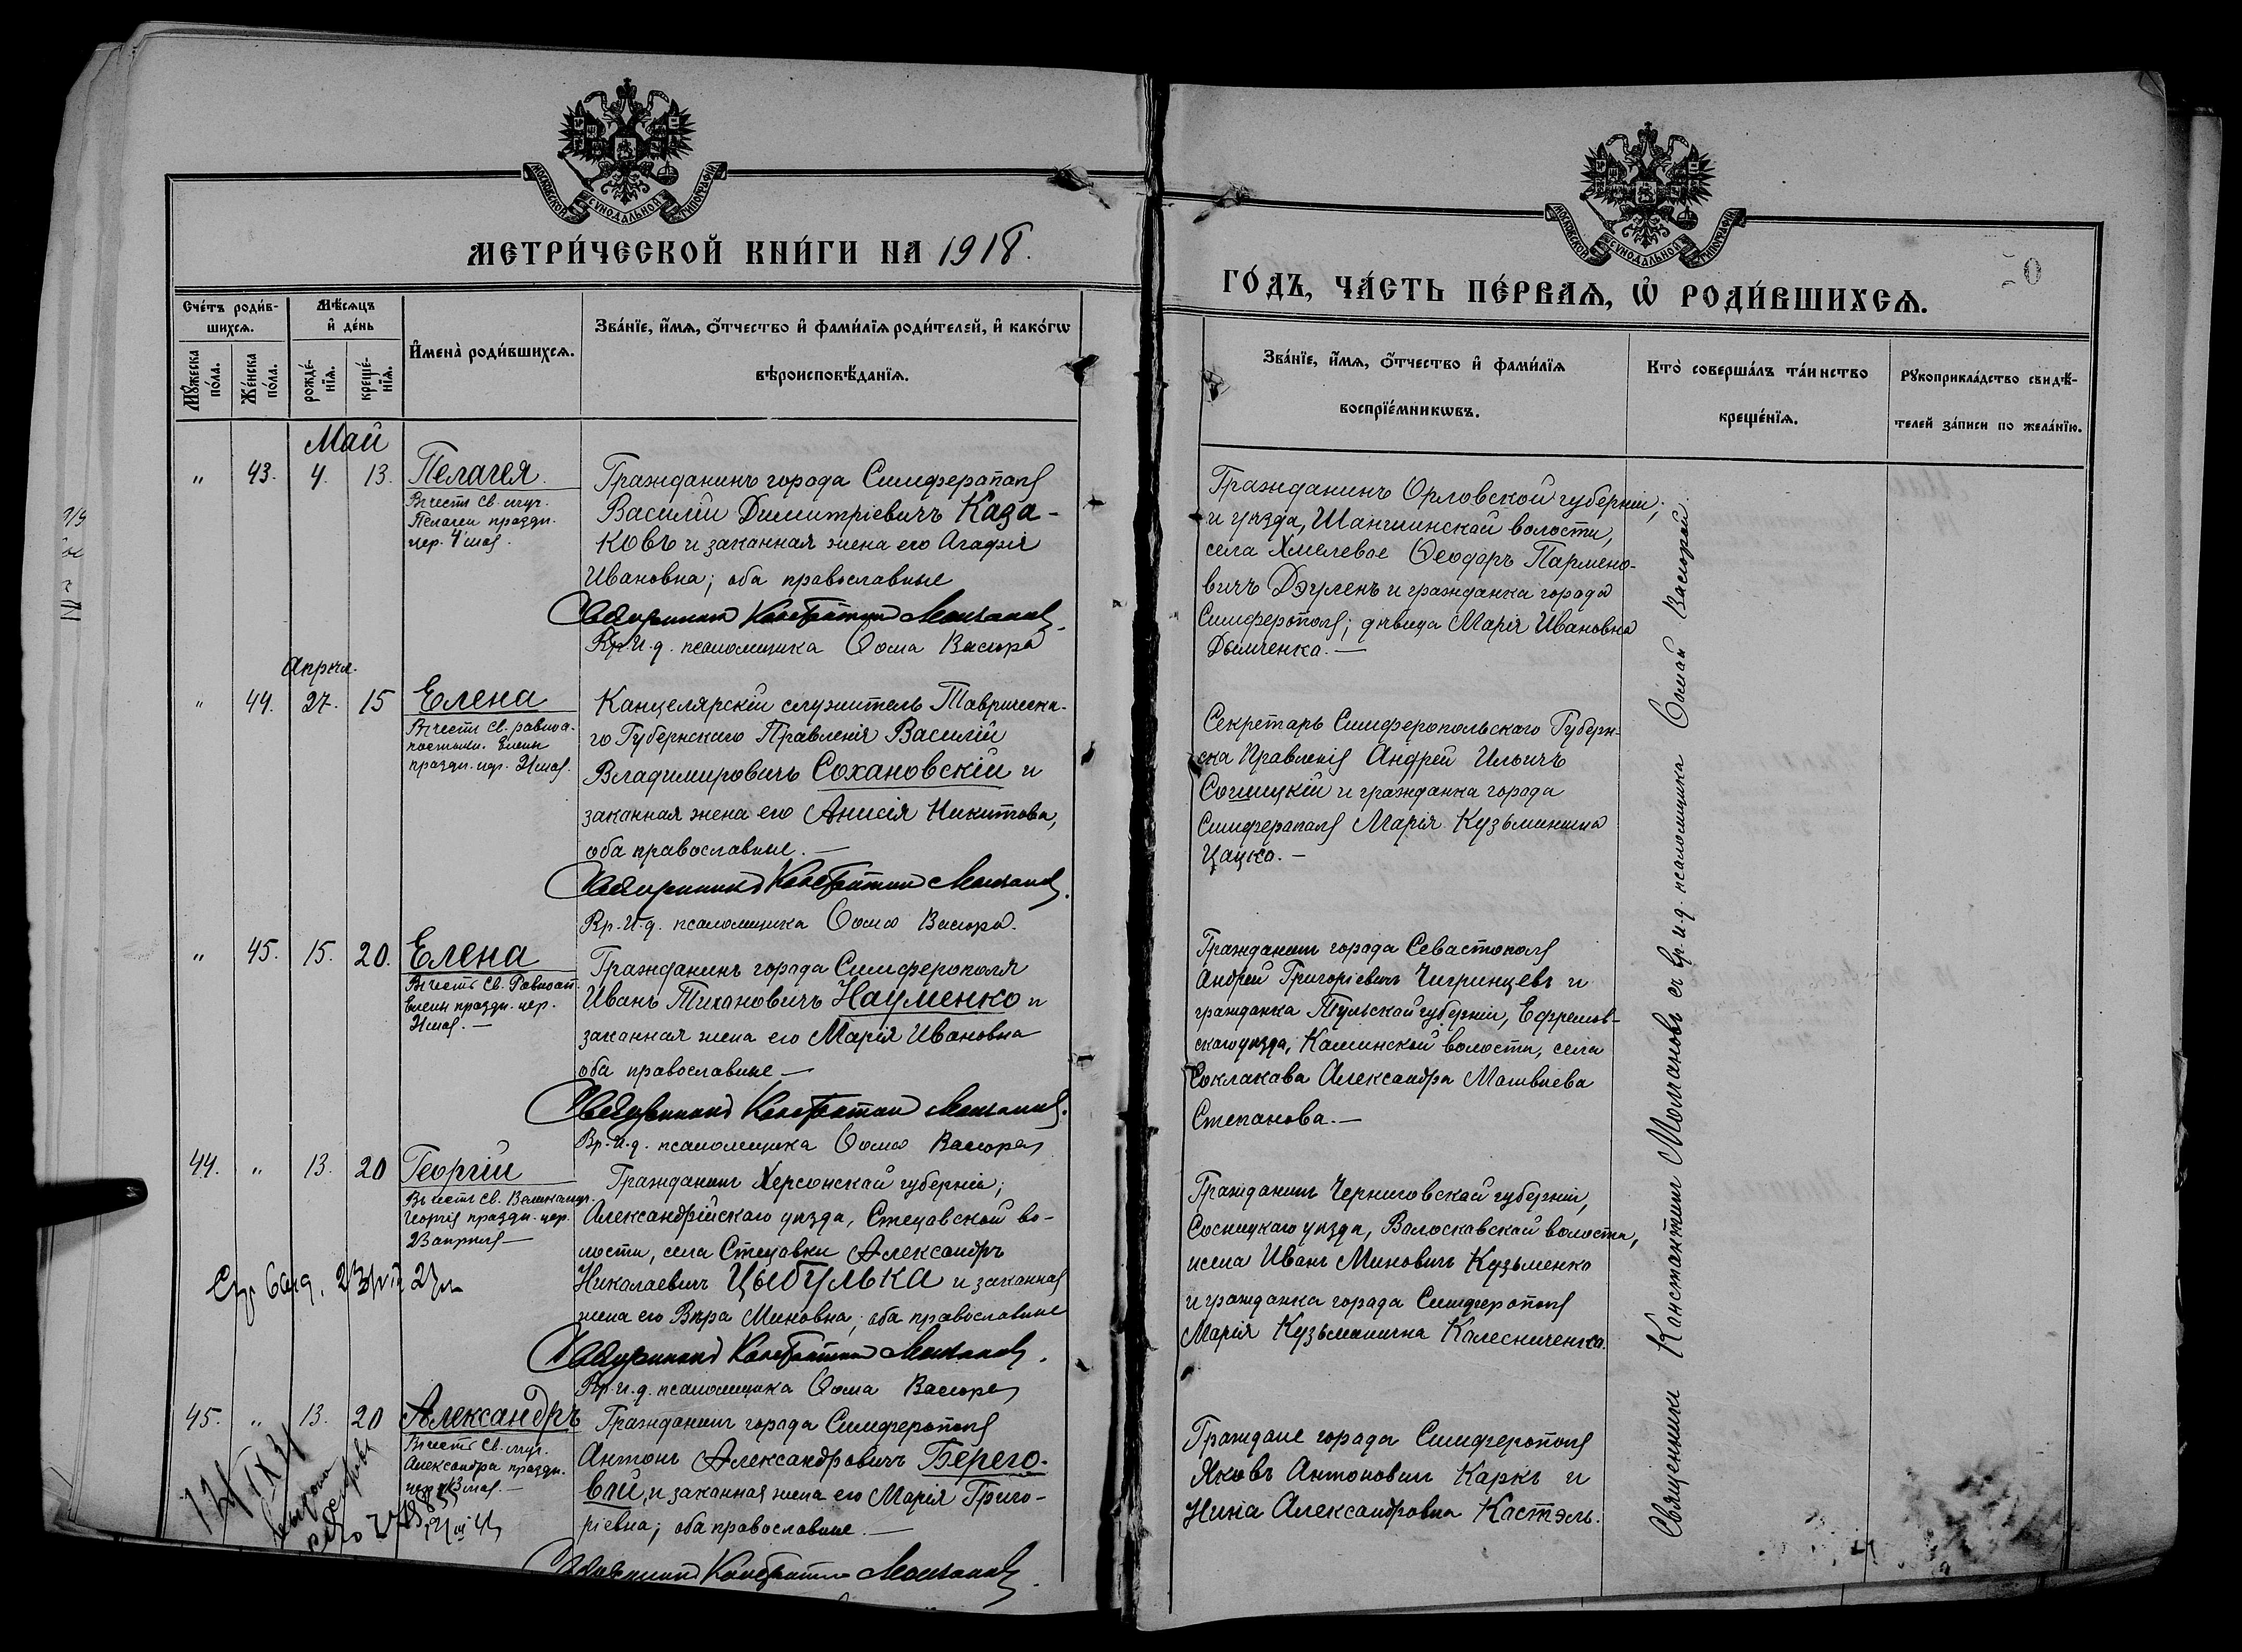 МОСКОВСКОЙ СѴНОДАЛЬНОЙ ТИПОГРАФИИ
МЕТРИ́ЧЕСКОЙ КНИ́ГИ НА 1918.
Сче́тъ роди́в-
шихсѧ.
Мѣ́сѧцъ
и҆ де́нь
И҆мена̀ роди́вшихсѧ.
Зва́нїе, и҆́мѧ, ѻ҆́тчество и҆ фами́лїѧ роди́телей, и҆ како́гѡ
вѣроисповѣ́данїѧ.
Мꙋ́жеска
по́ла.
Же́нска
по́ла.
рожде́-
нїѧ.
креще́-
нїѧ.
Май
" 43. 4. 13. Пелагея
Въ честь Св. муч.
Пелагеи праздн.
цер. 4 мая.
Гражданинъ города Симферополя
Василій Димитріевичъ Каза-
ковъ и законная жена его Агафія
Ивановна; оба православные
Священникъ Константинъ Молчановъ.
Вр. И. д. псаломщика Ѳома Васюра
Апрѣл.
" 44. 27. 15 Елена
Въ честь Св. равноа-
постольн. Елены
праздн. цер. 21 мая.
Канцелярскій служитель Тавричска-
го Губернскаго Правленія Василій
Владимировичъ Сохановскій и
законная жена его Анисія Никитова,
оба православные. —
Священникъ Константинъ Молчановъ.
Вр. И. д. псаломщика Ѳома Васюра.
" 45. 15. 20. Елена
Въ честь Св. Равноап.
Елены праздн. цер.
21 мая. —
Гражданинъ города Симферополя
Иванъ Тихоновичъ Науменко и
законная жена его Марія Ивановна
оба православные —
Священникъ Константинъ Молчановъ.
Вр. И. д. псаломщика Ѳома Васюра
44. " 13. 20 Георгій
Въ честь Св. Великомуч.
Георгія праздн. цер.
23 апрѣля —
Гражданинъ Херсонской губерніи;
Александрійскаго уѣзда, Стецовской во-
лости, села Стецовки Александръ
Николаевичъ Цыбулька и законная
жена его Вѣра Миновна; оба православные
Священникъ Константинъ Молчановъ.
Вр. И. д. псаломщика Ѳома Васюра
45. " 13. 20 Александръ
Въ честь Св. муч.
Александра праздн.
цер. 13 мая. —
Гражданинъ города Симферополя
Антонъ Александровичъ Берего-
вый, и законная жена его Марія Григо-
ріевна; оба православные. —
Священникъ Константинъ Молчановъ.
МОСКОВСКОЙ СѴНОДАЛЬНОЙ ТИПОГРАФИИ
20
ГО́ДЪ, ЧА́СТЬ ПЕ́РВАѦ, Ѡ҆ РОДИ́ВШИХСѦ.
Зва́нїе, и҆́мѧ, ѻ҆́тчество и҆ фами́лїѧ
воспрїе́мникѡвъ.
Кто̀ соверша́лъ та́инство
креще́нїѧ.
Рꙋкоприкла́дство свидѣ́-
телей за́писи по жела́нїю.
Гражданинъ Орловской губерніи,
и уѣзда, волости,
села Хмелевое Ѳеодоръ Пармено-
вичъ и гражданка города
Симферополя; дѣвица Марія Ивановна
Дымченка. —
Секретарь Симферопольскаго Губерн-
ска Правленія Андрей Ильичъ
и гражданка города
Симферополя Марія Кузьминична
Цацко. —
Гражданинъ города Севастополя
Андрей Григоріевичъ Чигринцевъ и
гражданка Тульской губерніи, Ефремов-
скаго уѣзда, Кашинской волости, села
Соклакова Александра Матвѣева
Степанова. —
Гражданинъ Черниговской губерніи,
Сосницкаго уѣзда, Волоскавской волости,
Иванъ Миновичъ Кузьменко
и гражданка города Симферополя
Марія Кузьминична Колесниченка.
Граждане города Симферополя
Яковъ Антоновичъ Каркъ и
Нина Александровна Кастэль.
Священникъ Константинъ Молчановъ съ вр. и. д. псаломщика Ѳомой Васюрой